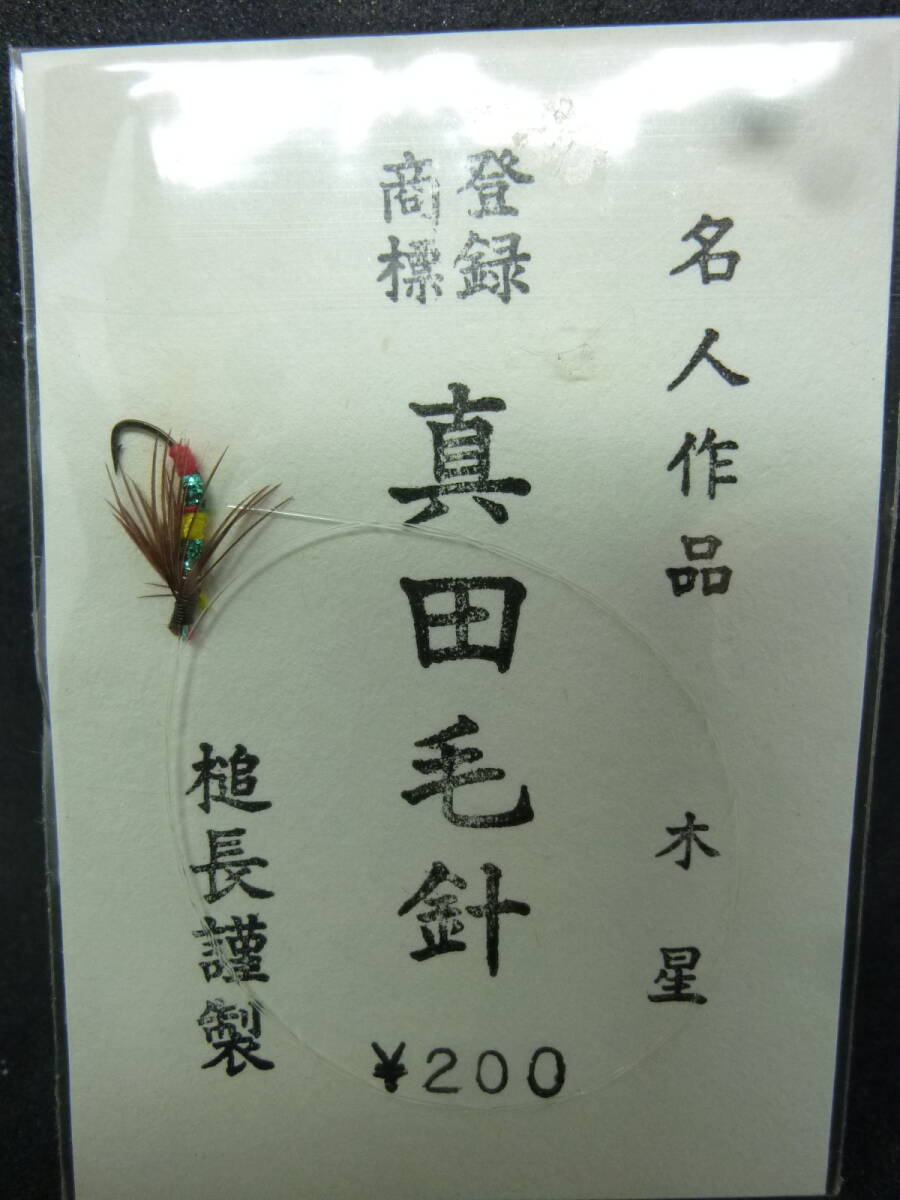 名人作品
木星
登録
商標
真田毛針
¥200
槌長謹製